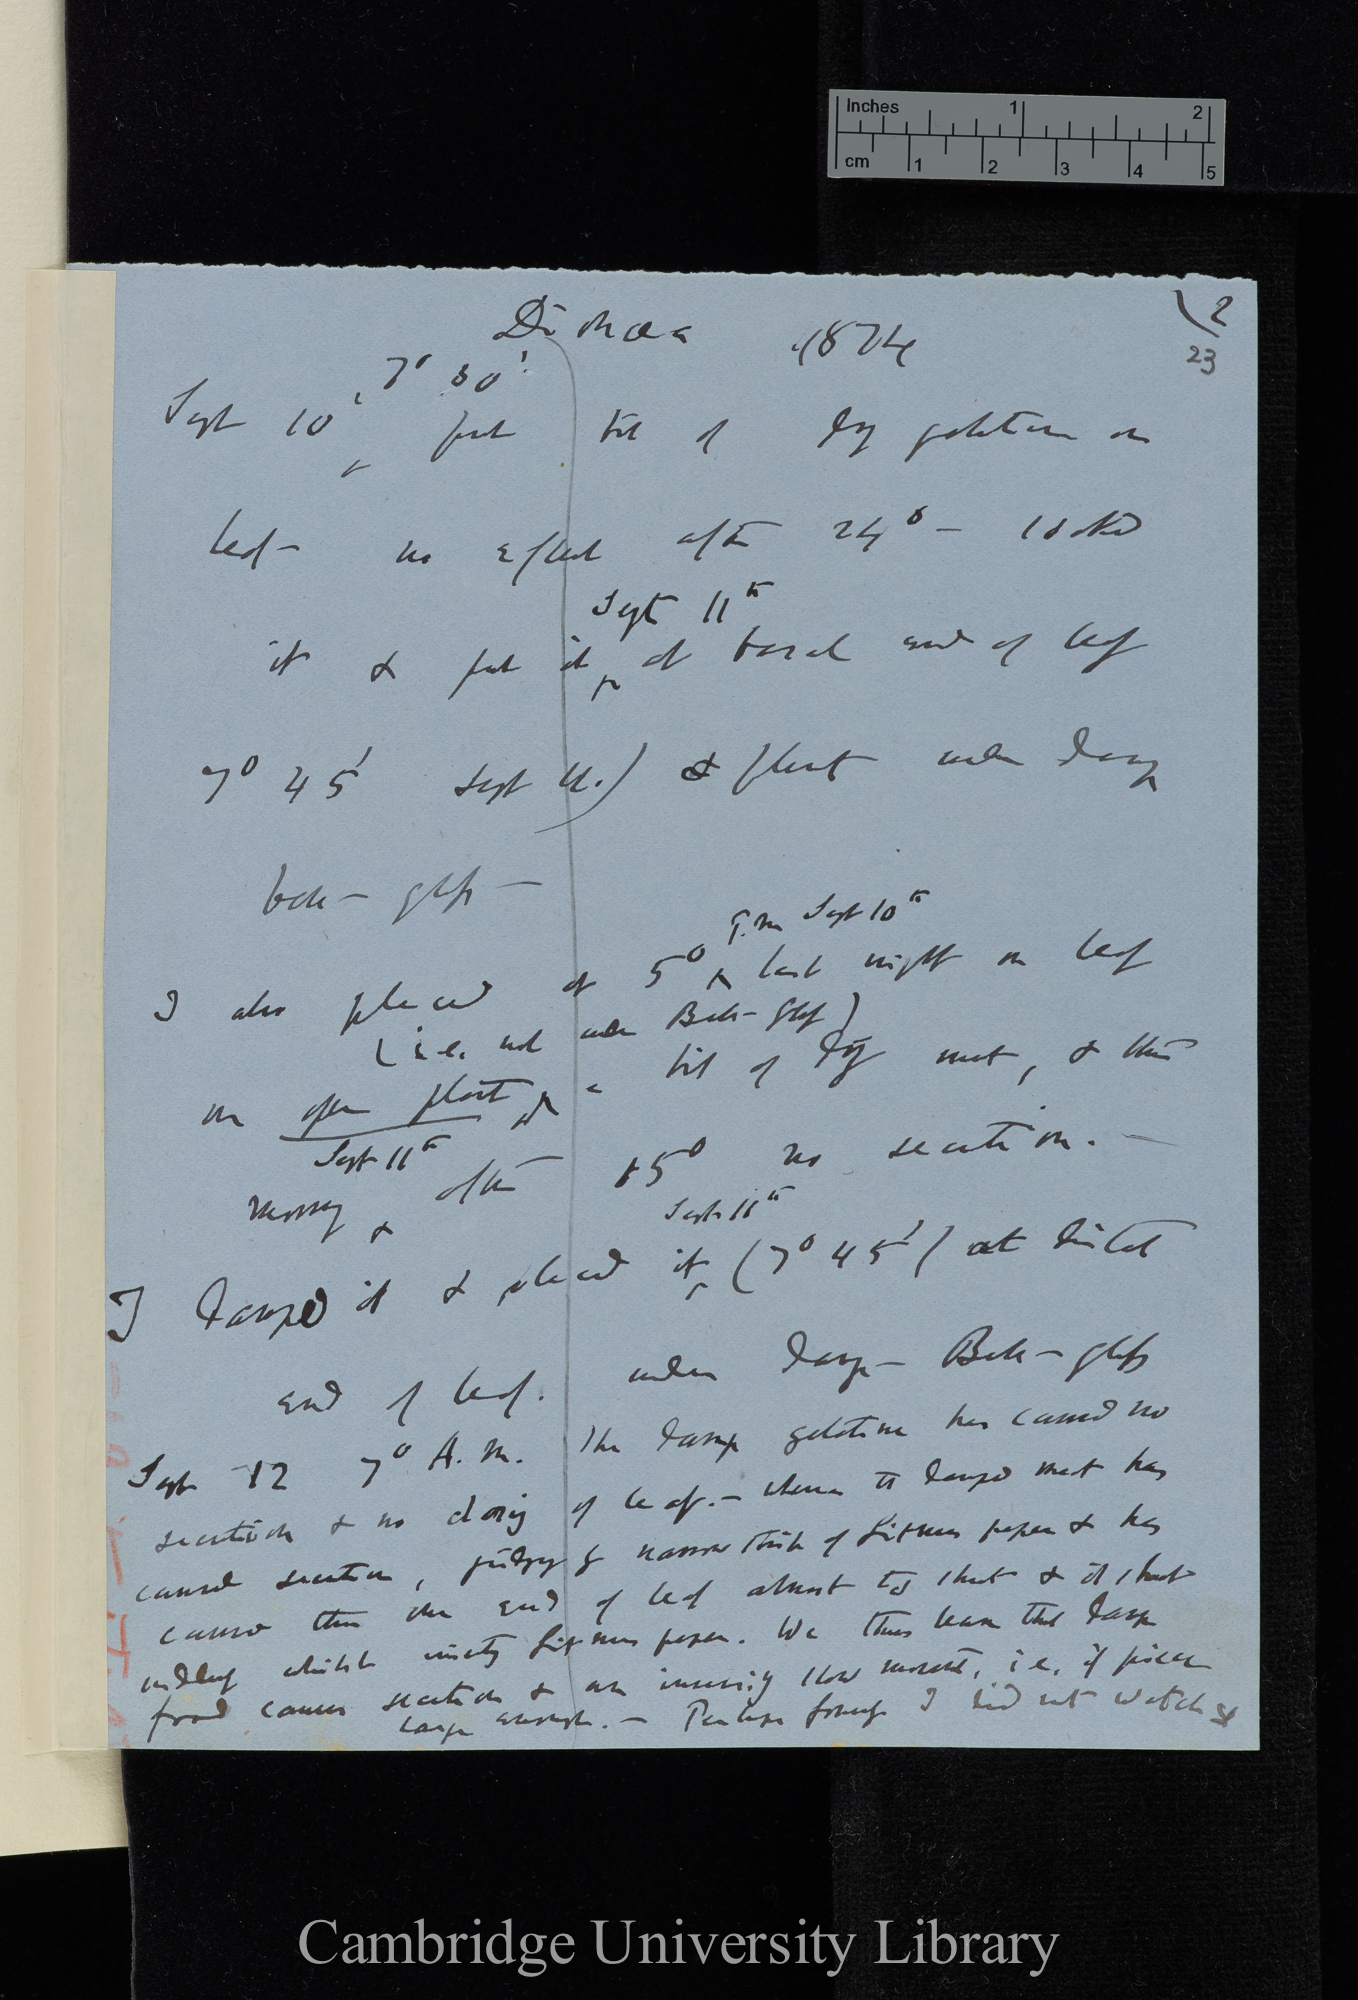 Inches 1 2
cm 1 2 3 4 5
Dionaea 1874
(2
23
7° 30'
Sept 10, put bit of dry gelatine on
leaf — no effect after 24° — soaked
Sept 11th
it & put it at basal end of leaf
7° 45' Sept 11.) & plant under damp
bell-glass —
P.m Sept 10th
I also placed at 5° last night on leaf
(i.e. not under Bell-glass)
on open plant a bit of dry meat, & this
Sept 11th
morning after 15° no secretion. —
Sept 11th
I damped it & placed it (7° 45') at distal
end of leaf. under damp — Bell-glass
Sept 12 7° A.M. The damp gelatine has caused no
secretion & no closing of leaf. — whereas the damped meat has
caused secretion, judging by narrow strip of Litmus paper & has
caused the end of leaf almost to shut & it shut
whilst inserting Litmus paper. We thus learn that damp
food causes secretion & an slow movement, i.e. if pieces
large enough. — Perhaps formerly I did not watch
Cambridge University Library